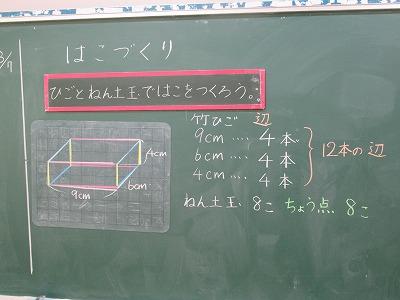 3/7
はこづくり
ひごとねん土玉ではこをつくろう。
竹ひご 辺
9cm …. 4本
6cm …. 4本
4cm …. 4本
12本の辺
4cm
6cm
9cm
ねん土玉 8こ ちょう点 8こ